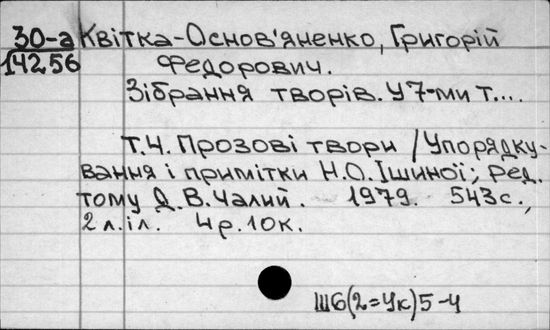 30-а Квітка-Основ'яненко, Григорій
14256 Федорович.
Зібрання творів. У 7-ми т....
Т.4. Прозові твори / Упорядку-
вання і примітки Н.О.Ішиної; Ред.
тому Д.В.Чалий. 1979. 543с.,
2 л.іл. 4р.10к.
Ш6(2=Ук)5-4